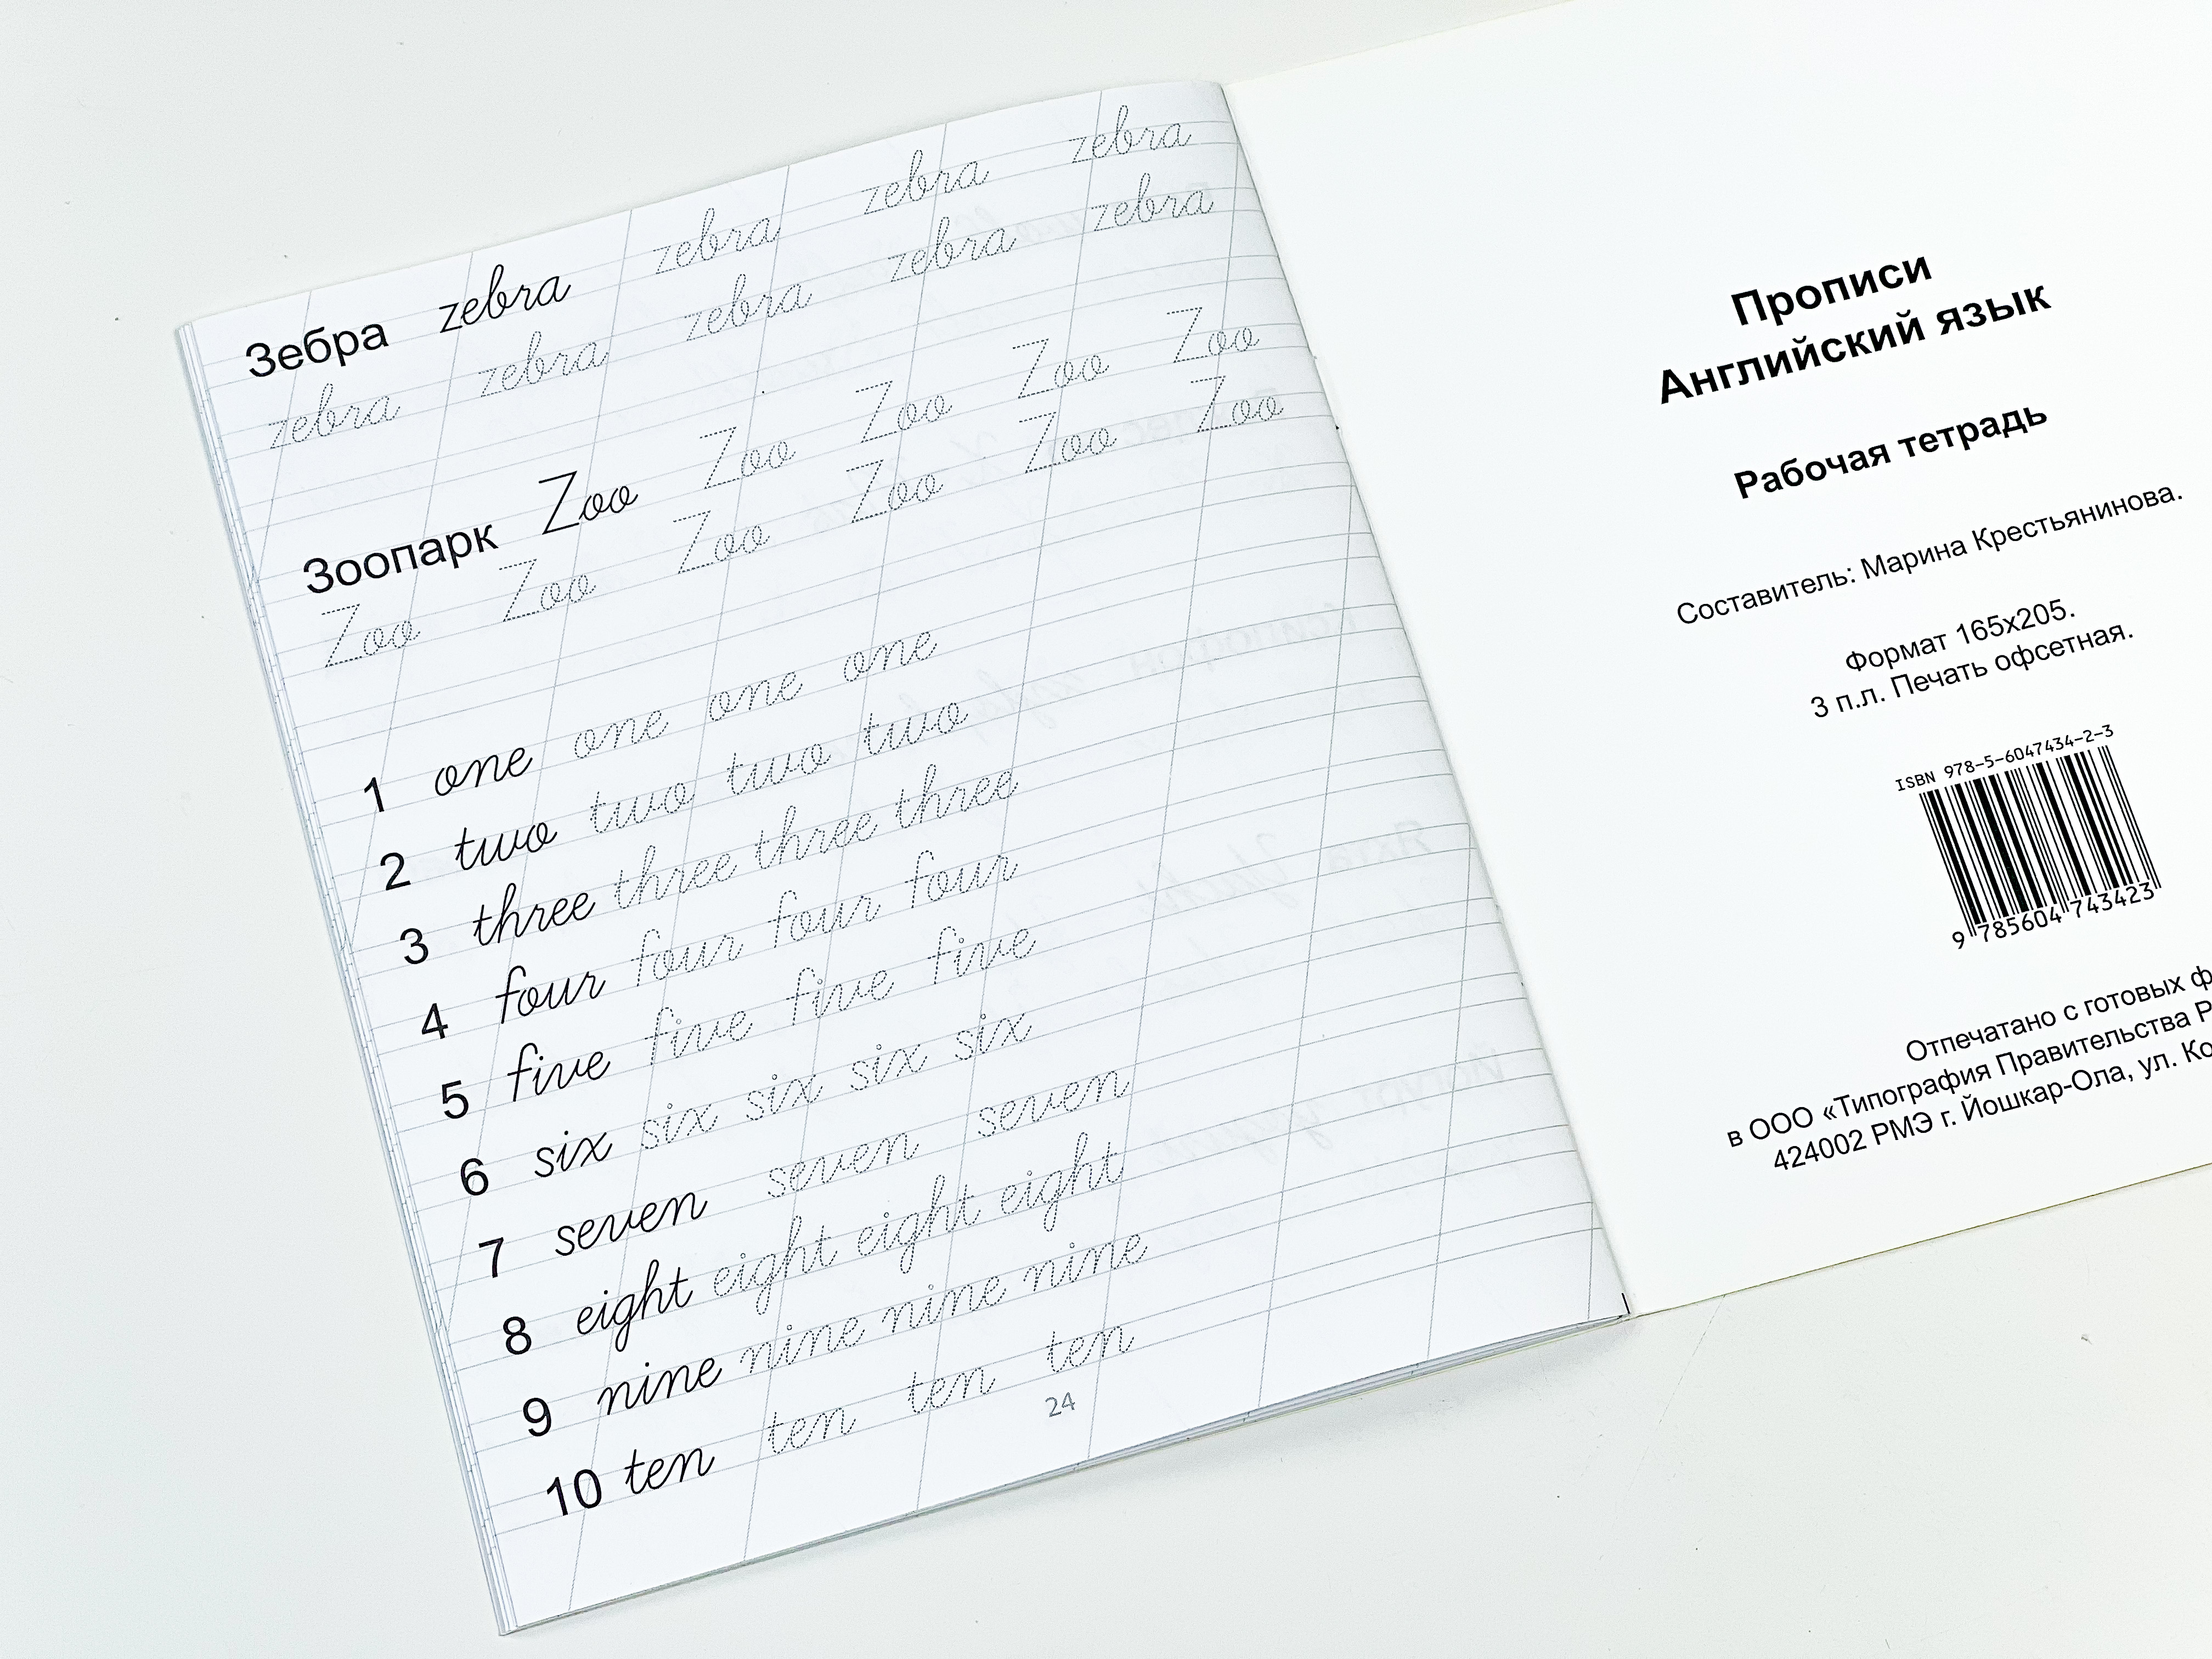 Зебра zebra zebra zebra zebra
zebra zebra zebra zebra zebra
Зоопарк Zoo Zoo Zoo Zoo Zoo
Zoo Zoo Zoo Zoo Zoo Zoo
1 one one one one
2 two two two two
3 three three three three
4 four four four four
5 five five five five
6 six six six six six
7 seven seven seven
8 eight eight eight eight
9 nine nine nine nine
10 ten ten ten ten
24
Прописи
Английский язык
Рабочая тетрадь
Составитель: Марина Крестьянинова.
Формат 165х205.
3 п.л. Печать офсетная.
ISBN 978-5-6047434-2-3
9 785604 743423
Отпечатано с готовых
в ООО «Типография Правительства
424002 РМЭ г. Йошкар-Ола, ул.